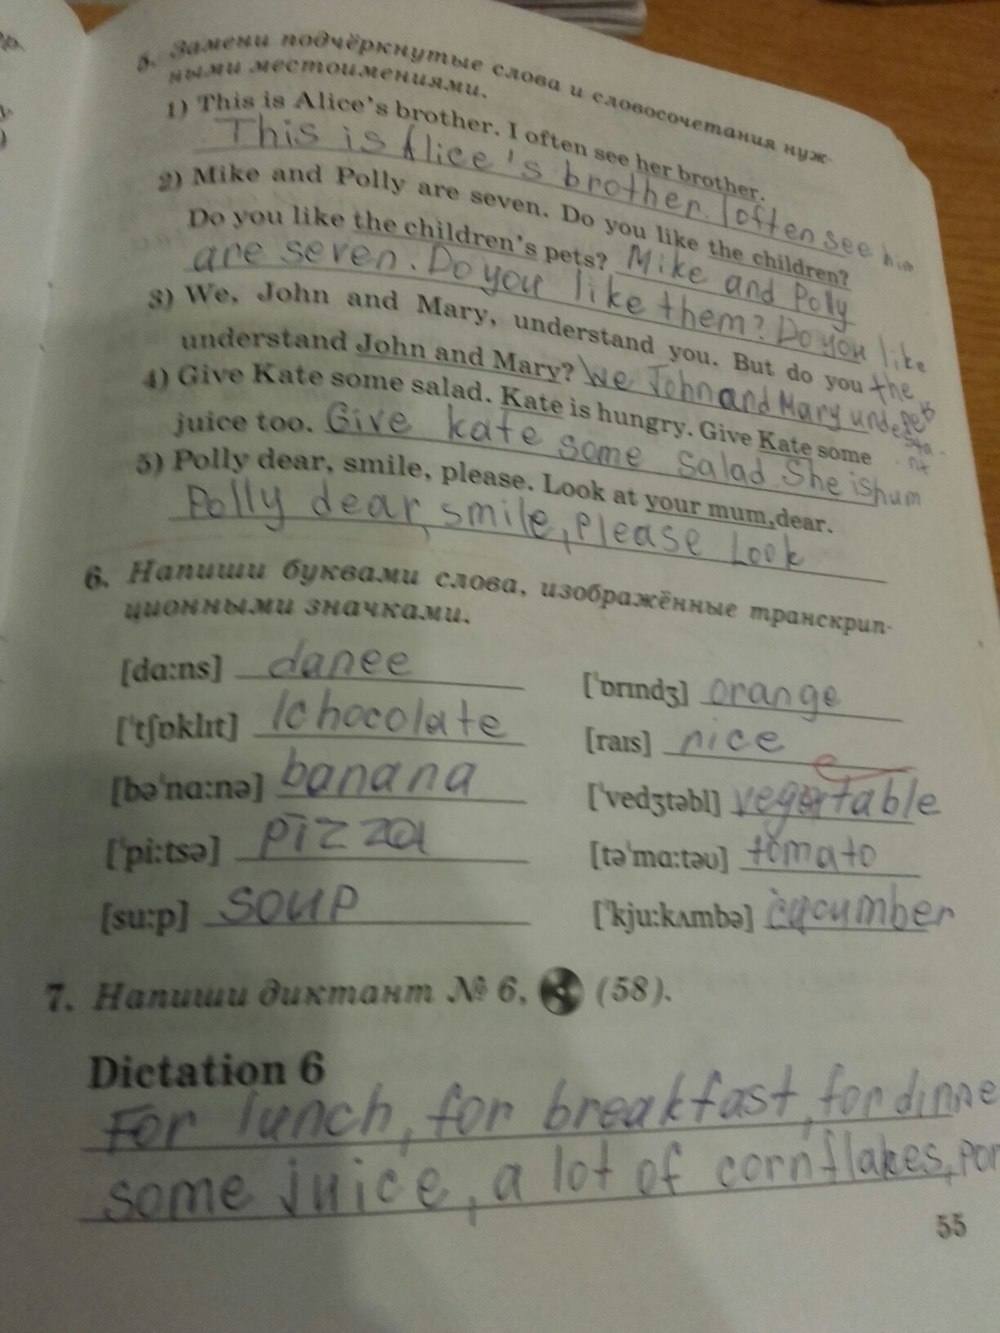 5. Замени подчёркнутые слова и словосочетания нуж-
ными местоимениями.
1) This is Alice's brother. I often see her brother.
This is Alice's brother. I often see him
2) Mike and Polly are seven. Do you like the children?
Do you like the children's pets? Mike and Polly
are seven. Do you like them? Do you like
the
pets
3) We, John and Mary, understand you. But do you
understand John and Mary? We John and Mary undesta
4) Give Kate some salad. Kate is hungry. Give Kate some
juice too. Give kate some salad She is hum
5) Polly dear, smile, please. Look at your mum, dear.
Polly dear, smile, please Look
6. Напиши буквами слова, изображённые транскрип-
ционными значками.
[dɑ:ns] danee
[ˈɒrɪndʒ] orange
[ˈtʃɒklɪt] chocolate
[raɪs] nice
[bəˈnɑ:nə] banana
[ˈvedʒtəbl] vegetable
[ˈpi:tsə] pizza
[təˈmɑ:təʊ] tomato
[su:p] soup
[ˈkju:kʌmbə] cucumber
7. Напиши диктант № 6, (58).
Dictation 6
For lunch, for breakfast, for dinne
some juice, a lot of cornflakes, por
55